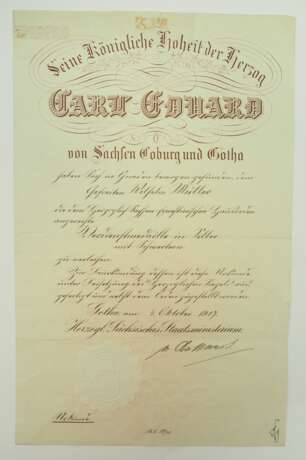 Seine Königliche Hoheit der Herzog
CARL EDUARD
von Sachsen Coburg und Gotha
haben Sich in Gnaden bewogen gefunden, dem
Gefreiten Wilhelm Müller
die dem Herzoglich Sachsen Ernestinischen Hausorden
Verdienstmedaille in Silber
mit Schwertern
zu verleihen.
Zur Beurkundung dessen ist diese Urkunde
unter Beidrückung des Herzoglichen Siegels aus-
gefertigt und nebst dem Orden zugestellt worden.
Gotha, am Oktober 1917
Herzogl. Sächsisches Staatsministerium.
Urkunde